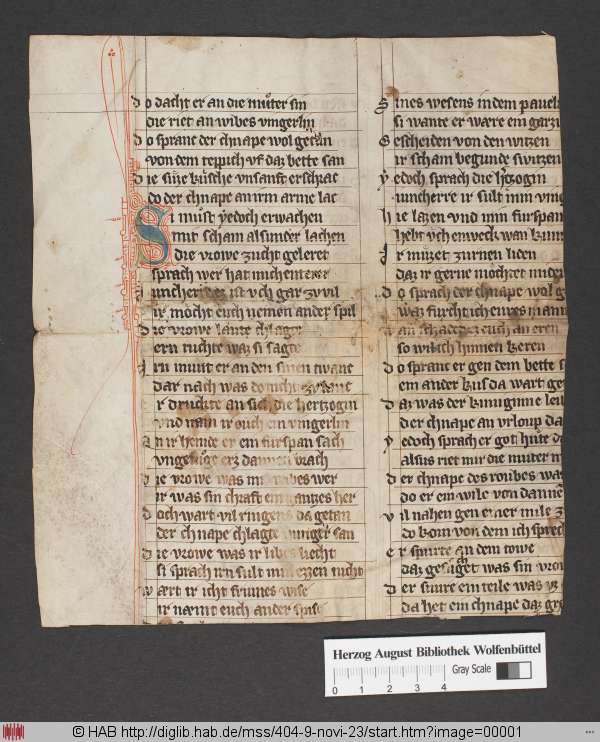 do dacht er an die můter sin
die riet an wibes vingerlin
do spranc der chnape wol getan
von dem teppich vf daz bette san
die sůze kůsche vnsanft erschrac
do der chnape an irm arme lac
Si můst ẏedoch erwachen
mit scham al sunder lachen
die vrowe zucht geleret
sprach wer hat mich
iuncherre ez ist vch gar zv vil
ir mocht euch nemen ander spil
die vrowe laute chlagte
ern ruchte waz si sagte
irn munt er an den sinen twanc
dar nach was do nicht zv lanc
er druckte an sich die hertzogin
vnd nam ir ouch ein vingerlin
an ir hemde er ein furspan sach
vngefůge erz dannen brach
die vrowe was mit wibes wer
ir was sin chraft ein gantzes her
doch wart vil ringens da getan
der chnape chlagte den hunger san
die vrowe was ir libes liecht
si sprach irn sult min ezzen nicht
wært ir icht frumes wise
ir næmt euch ander spise
Sines wesens in dem pavel
si wante er wære ein garzv
Gescheiden von den witzen
ir scham begunde switzen
ẏedoch sprach die h'tzogin
iuncherre ir sult min ving
hie lazen vnd min furspan
hebt vch enweck wan kum
ir můzet zurnen liden
daz ir gerne mochtet miden
do sprach der chnape wol g
waz furcht ich ewes mann
wan schadet ez euch an eren
so wil ich hinnen keren
do spranc er gen dem bette s
ein ander kus da wart ge
daz was der kuniginne leit
der chnape an vrloup da
ẏedoch sprach er got hůte d
alsus riet mir die můter m
der chnape des roubes wa
do er ein wile von danne
vil nahen gen einer mile z
do kom von dem ich sprech
er spurte an dem towe
daz gesůchet was sin vrow
der snure ein teile was
da het ein chnape daz gr
Herzog August Bibliothek Wolfenbüttel
0 1 2 3 4 Gray Scale
© HAB http://diglib.hab.de/mss/404-9-novi-23/start.htm?image=00001